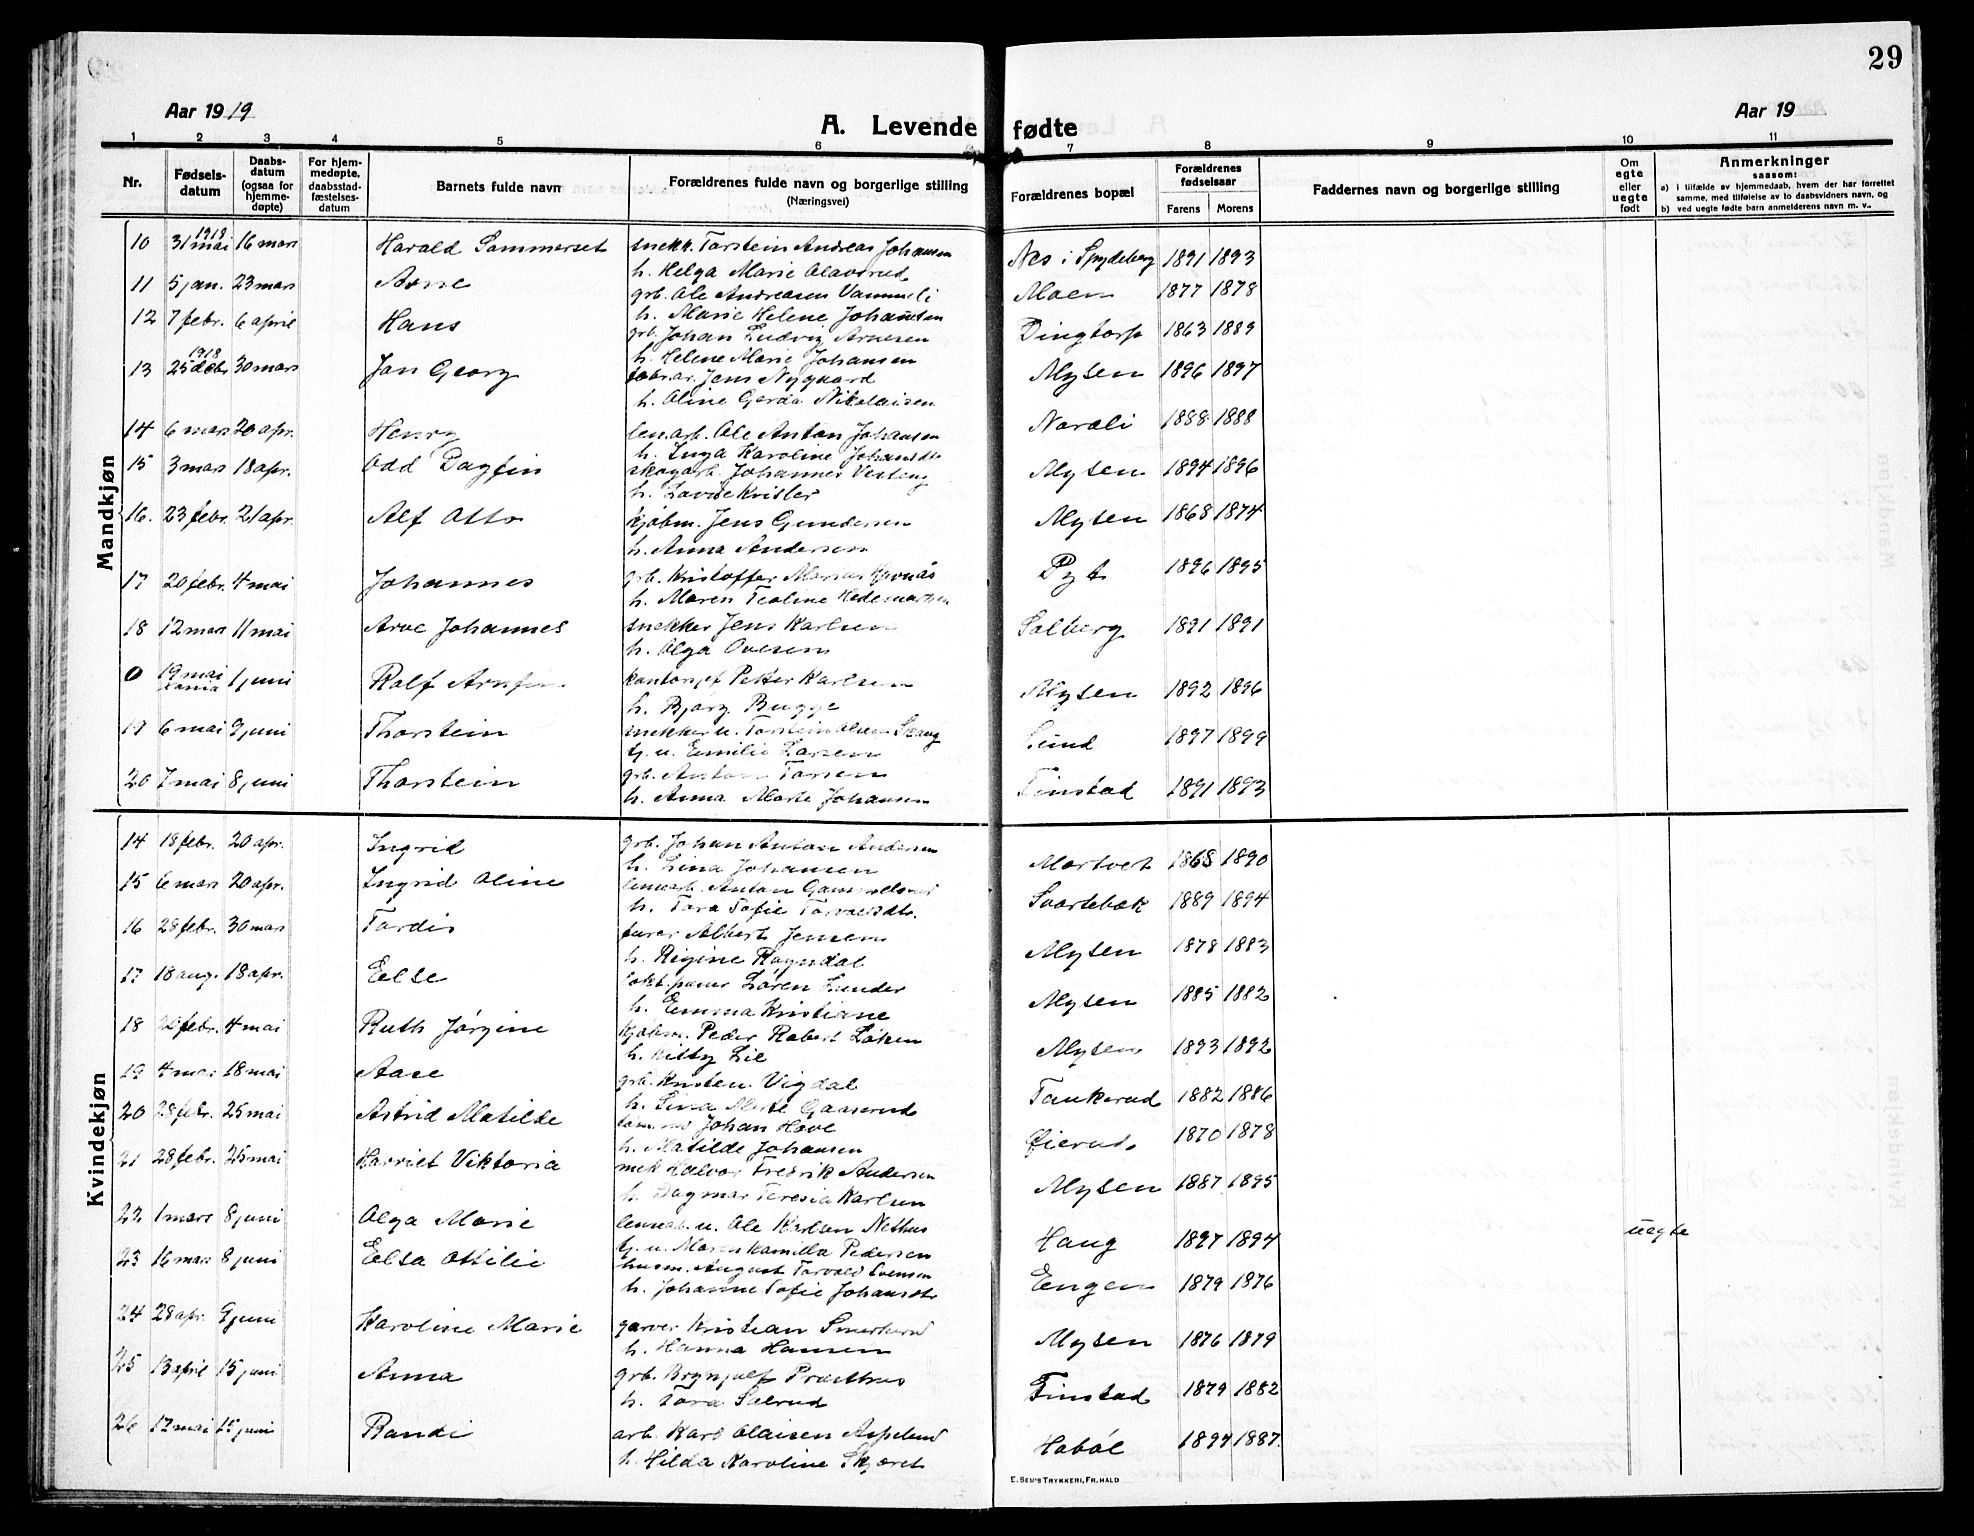 29
Aar 1919
A. Levende fødte
Aar 19
1 2 3 4 5 6 7 8 9 10 11
Nr.
Fødsels-datum
Daabs-datum (ogsaa for hjemme-døpte)
For hjem-medøpte, daabsstad-fæstelses-datum
Barnets fulde navn
Forældrenes fulde navn og borgerlige stilling (Næringsvei)
Forældrenes bopæl
Forældrenes fødselsaar
Farens Morens
Faddernes navn og borgerlige stilling
Om egte eller uegte født
Anmerkninger
saasom:
a) i tilfælde av hjemmedaab, hvem der har forrettet samme, med tilføielse av to daabsvidners navn, og
b) ved uegte fødte barn anmelderens navn m. v..
Mandkjøn
10 31 mai 1919 16 mars Harald Sommerset snekk. Torstein Andreas Johansen Nes i Spydeberg 1891 1893
h. Helga Marie Olavsrud
11 5 jan. 23 mars Arne grb. Ole Andreasen Vammeli Moen 1877 1878
h. Marie Helene Johansen
12 7 febr. 6 april Hans grb. Johan Ludvig Arnesen Dingtorp 1863 1889
h. Helene Marie Johansen
13 25 debr 1918 30 mars Jan Georg Jens Nygaard Mysen 1896 1897
h. Aline Gerda Nikolaisen
14 6 mars 20 apr. Henry Ole Anton Johansen 1888 1888
h. Inga Karoline Johansdtr
15 3 mars 18 apr. Odd Dagfin skogarb. Johannes Vesteng Mysen 1894 1896
h. Lovise Kristler
16. 23 febr. 21 apr. Alf Otto kjøbm. Jens Gundersen Mysen 1868 1874
h. Anna Andersen
17 20 febr. 4 mai Johannes grb. Kristoffer Marius Pyt 1896 1895
h. Maren Teoline
18 12 mars 11 mai Arve Johannes snekker Jens Karlsen Solberg 1891 1891
h. Olga Ovesen
0 19 mai 1 juni Rolf Arnfin Petter Karlsen Mysen 1892 1896
h. Bjorg Bugge
19 6 mai 9 juni Thorstein snekker u. Torstein Olsen Skaug Lund 1897 1899
tj. u. Emilie Larsen
20 7 mai 8 juni Thorstein grb. Anton Finstad 1891 1893
h. Anna Marte Johansen
Kvindekjøn
14 18 febr. 20 apr. Ingrid grb. Johan Anton Andersen Mortvet 1868 1890
h. Lina Johansen
15 6 mars 20 apr. Ingrid Oline Anton Svartebæk 1889 1894
h. Tora Sofie
16 28 febr. 30 mars Tordis Albert Jensen Mysen 1878 1883
h. Regine Rogndal
17 18 aug. 18 apr. Else Søren Lunder Mysen 1885 1882
h. Emma Kristiane
18 20 febr. 4 mai Ruth Jørgine kjøbm. Peder Robert Løken Mysen 1893 1892
h. Kitty Lie
19 4 mai 18 mai Aase grb. Kristen Vigdal Tankerud 1882 1886
h. Lina Marte Gaaserud
20 28 febr. 25 mai Astrid Matilde Johan Hove Øierud 1870 1878
h. Matilde Johansen
21 28 febr. 25 mai Harriet Viktoria mek Halvor Fredrik Andersen Mysen 1887 1895
h. Dagmar Teresia Karlsen
22 1 mars 8 juni Olga Marie u. Ole Karlsen Nethus Haug 1897 1894 uegte
tj. u. Maren Kamilla Pedersen
23 16 mars 8 juni Elsa Otilie husm. August Torvald Svensen Engen 1879 1876
h. Johanne Sofie Johansdtr
24 28 apr. 9 juni Karoline Marie garver Kristian Mysen 1876 1879
h. Hanna Hansen
25 13 april 15 juni Anna grb. Brynjulf Præsthus Finstad 1879 1882
h. Tora Solrud
26 17 mai 15 juni Randi arb. Karl Olaisen Aspelund Hobøl 1897 1887.
h. Hilda Karoline Skjæret
E. Sem's Trykkeri, Fr.hald